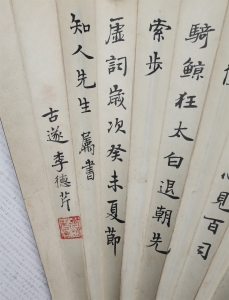 心見百司
騎鯨狂太白退朝先
索步
虛詞歲次癸未夏節
知人先生
書
古遂李德芹